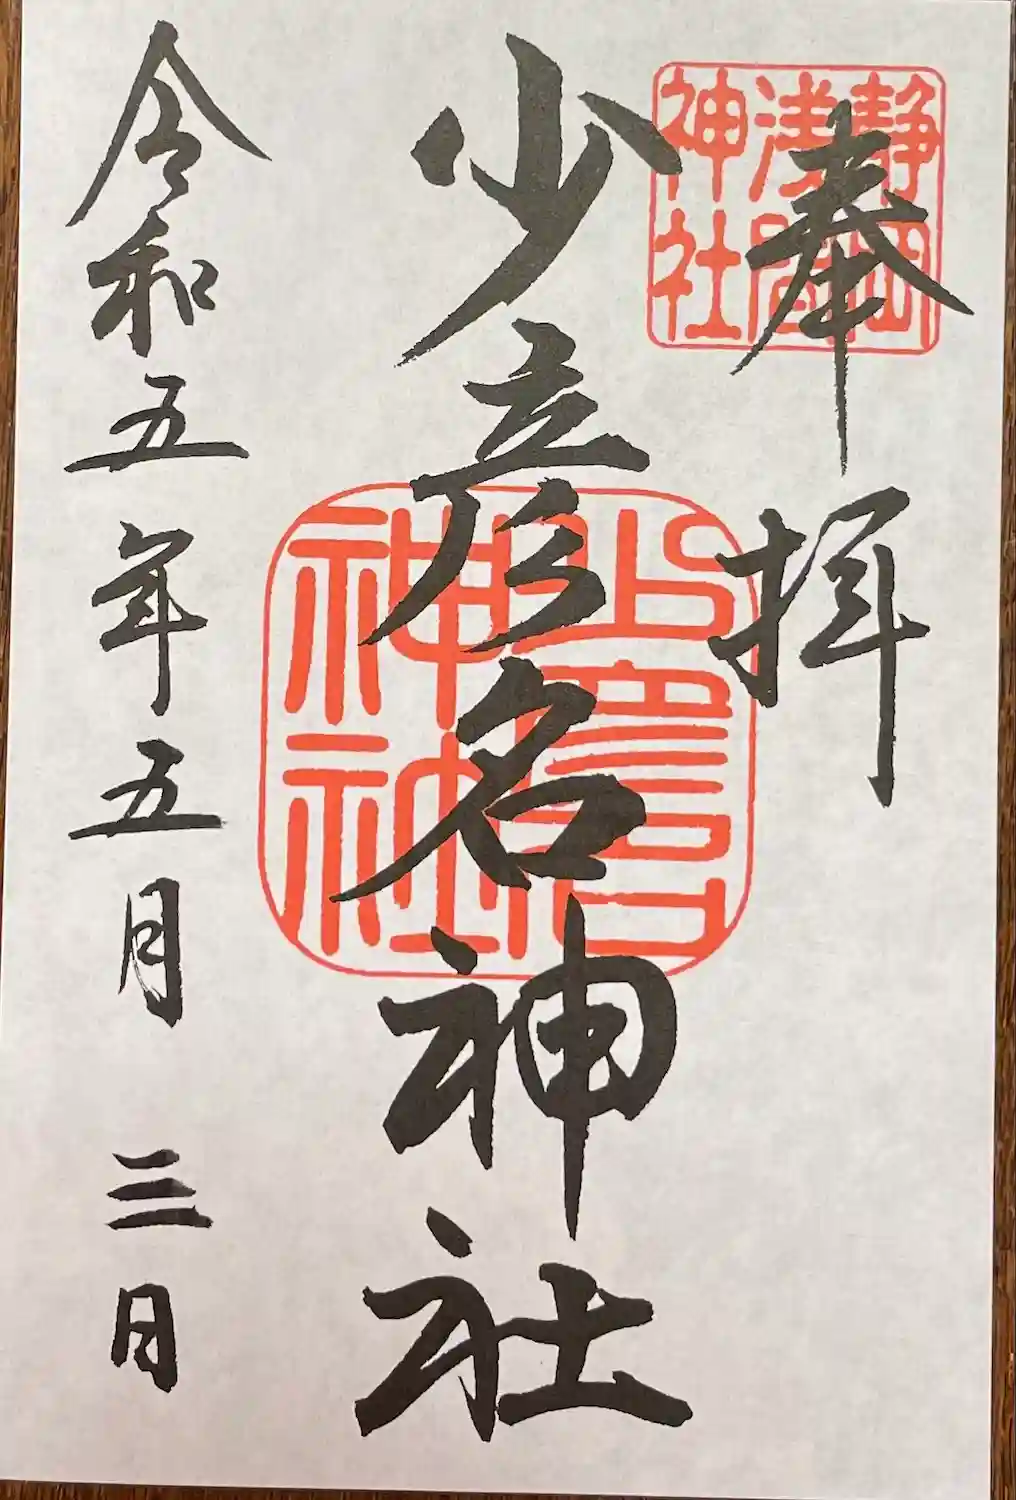 奉拝
静岡
浅間
神社
少彦名神社
神社
令和五年五月三日